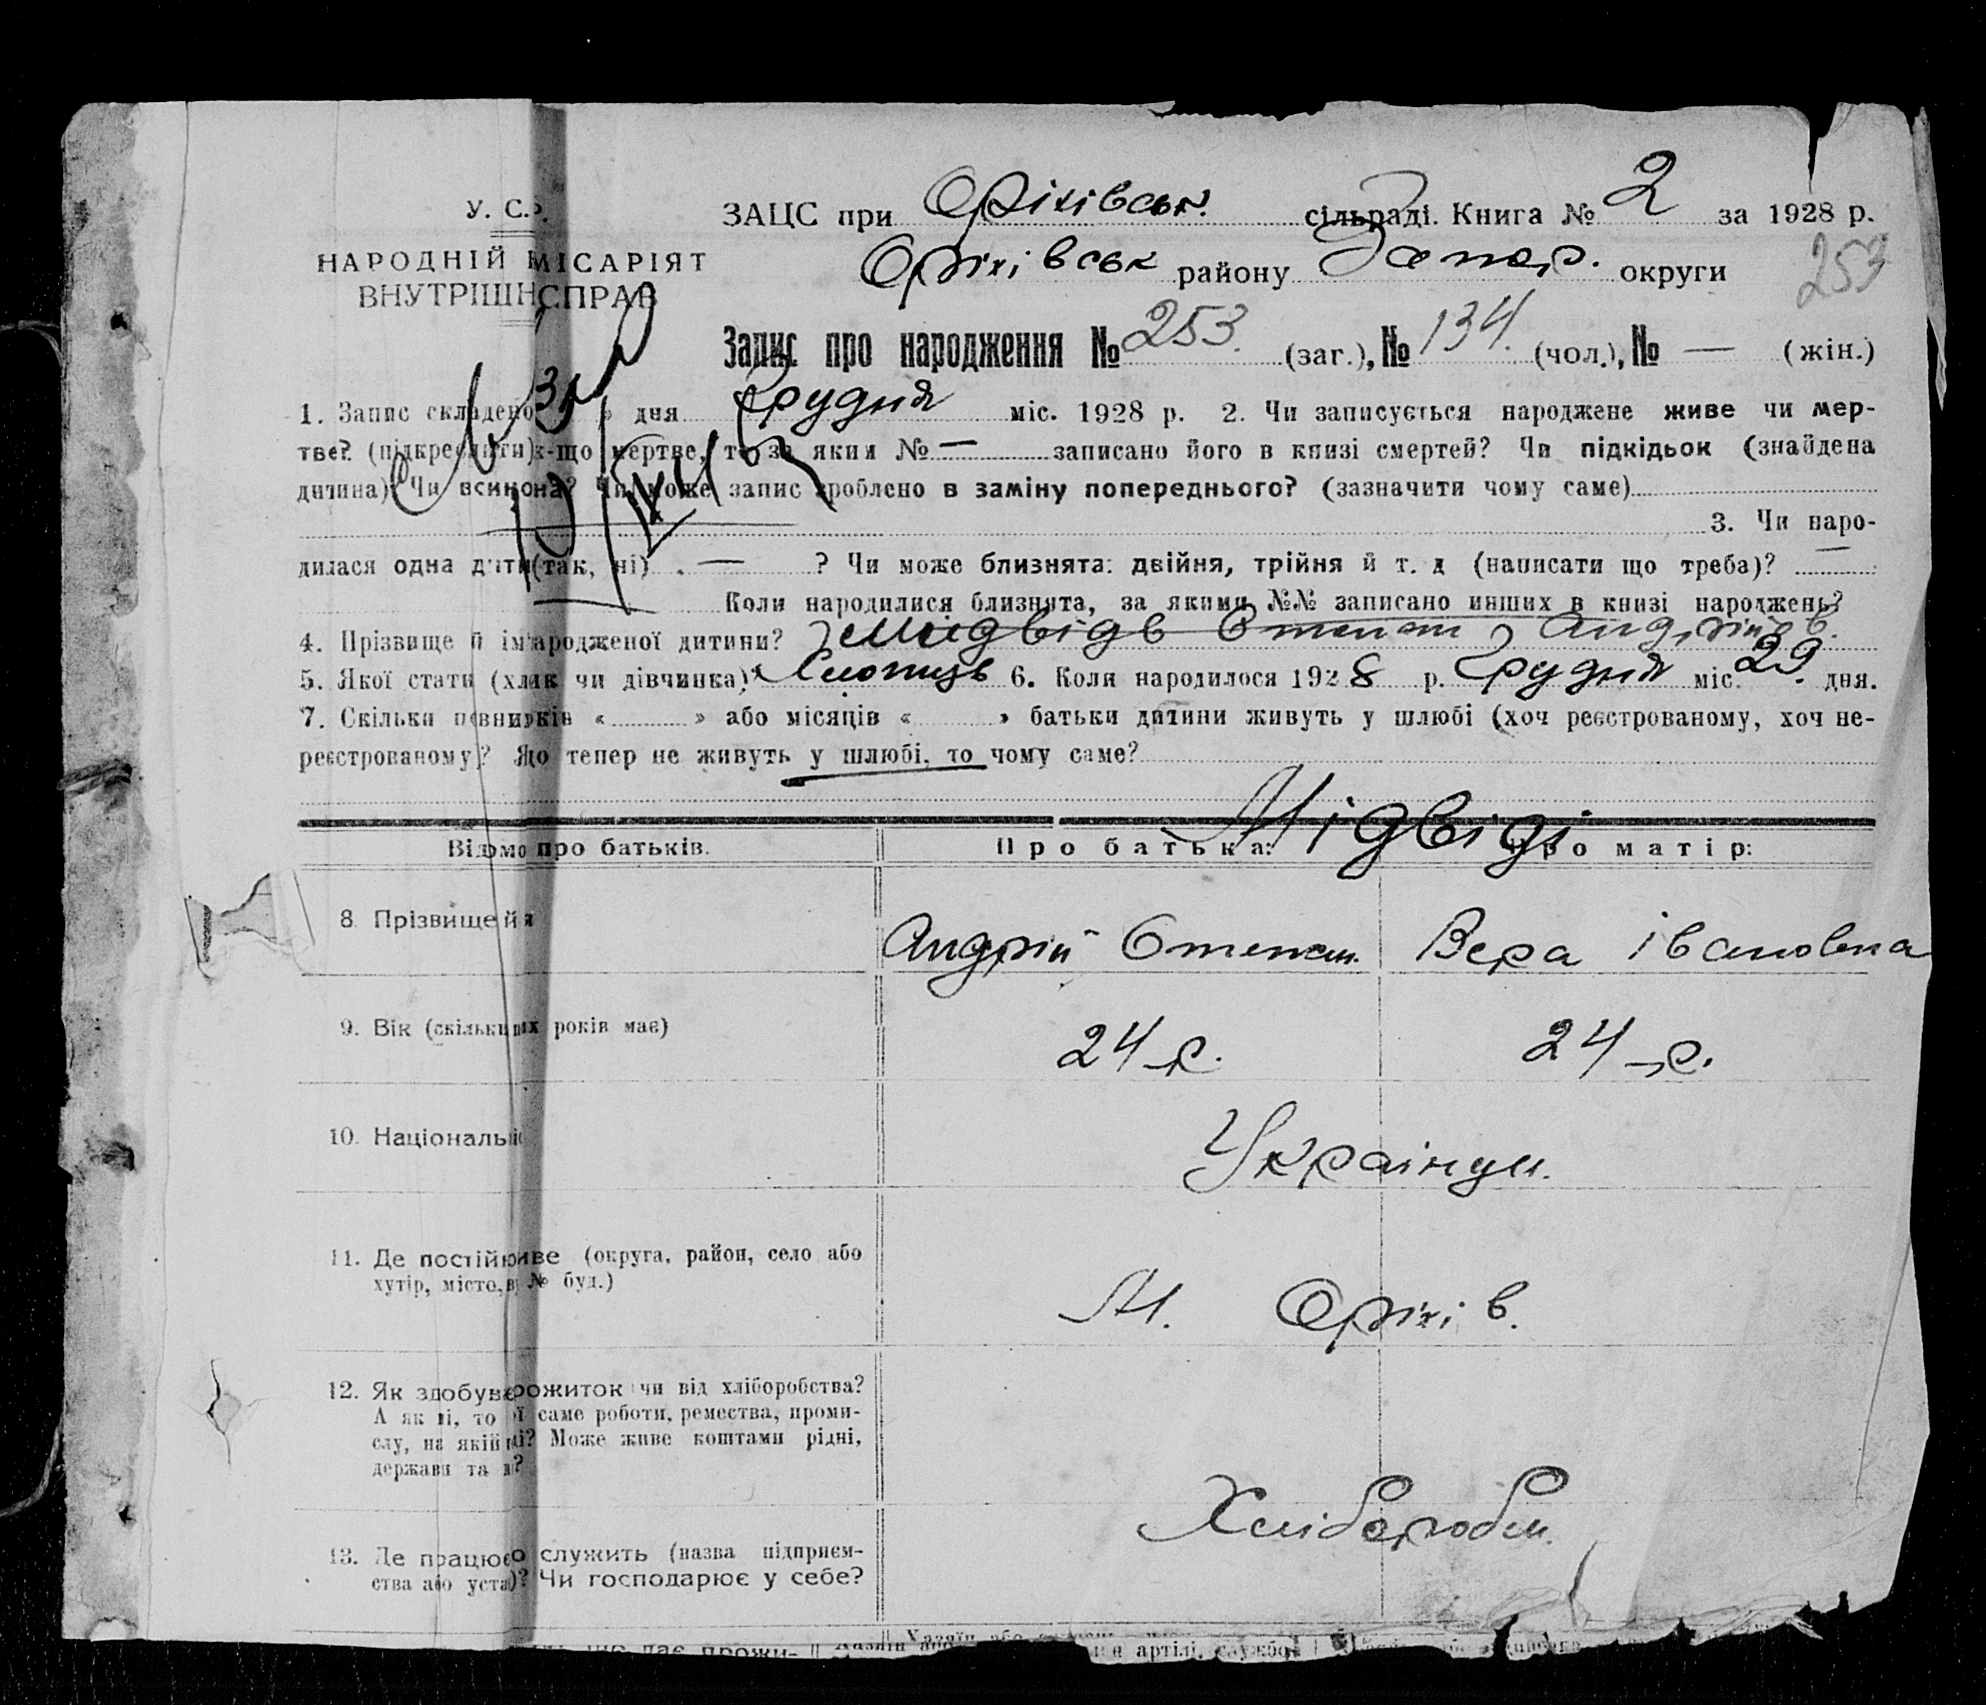 У. С.Р.
НАРОДНІЙ МІСАРІЯТ
ВНУТРІШН СПРАВ
ЗАЦС при Оріхівськ. сільраді. Книга № 2 за 1928 р.
Оріхівськ району Запор. округи
253
Запис про народження № 253. (заг.), № 134. (чол.), № — (жін.)
1. Запис складено 31 » дня Грудня міс. 1928 р. 2. Чи записується народжене живе чи мер-
тве? (підкреслити) к-що мертве, то за яким № — записано його в книзі смертей? Чи підкідьок (знайдена
дитина) Чи всинона? Чи може запис зроблено в заміну попереднього? (зазначити чому саме)
3. Чи наро-
дилася одна дити (так, ні) — ? Чи може близнята: двійня, трійня й т. д (написати що треба)? —
Коли народилися близнята, за якими №№ записано инших в книзі народжень?
4. Прізвище й ім народженої дитини? Мидвідв Степан Андрійв.
5. Якої стати (хлик чи дівчинка) Хлопиць 6. Коли народилося 1928 р. Грудня міс. 29. дня.
7. Скільки повних років « » або місяців « » батьки дитини живуть у шлюбі (хоч реєстрованому, хоч не-
реєстрованому)? Що тепер не живуть у шлюбі, то чому саме?
Відомо про батьків. Про батька: Про матір:
Мідвіді
8. Прізвище й я Андрій Степан. Вера Івановна
9. Вік (скільки их років має) 24 р. 24 р.
10. Національні Українци.
11. Де постій иве (округа, район, село або
хутір, місто, в № буд.)
М. Оріхів.
12. Як здобуває рожиток чи від хліборобства?
А як ні, то ої саме роботи, ремества, проми-
слу, на якій ді? Може живе коштами рідні,
держави та и?
Хлібороби.
13. Де працює о служить (назва підприєм-
ства або уста )? Чи господарює у себе?
що дає прожи-
артілі, службо